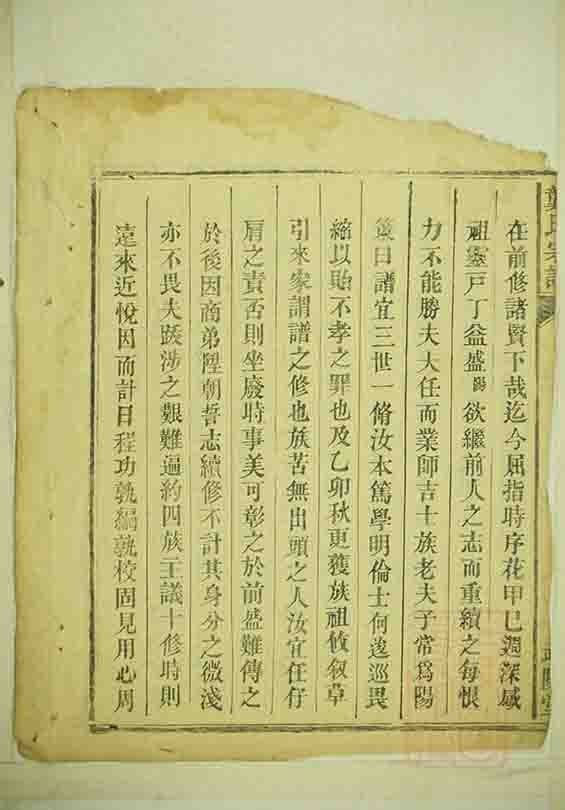 龔氏宗譜
在前修諸賢下哉迄今屈指時序花甲已週深感
祖靈戸丁益盛陽欲繼前人之志而重續之每恨
力不能勝夫大任而業師吉士族老夫子常爲陽
箴曰譜宜三世一脩汝本篤學明倫士何逡巡畏
縮以貽不孝之罪也及乙卯秋更獲族祖攸叙草
引來家謂譜之修也族苦無出頭之人汝宜任仔
肩之責否則坐廢時事美可彰之於前盛難傳之
於後因商弟陞朝誓志續修不計其身分之微淺
亦不畏夫跋涉之艱難遍約四族王議十修時則
遠來近悅因而計日程功孰編孰校固見用心周